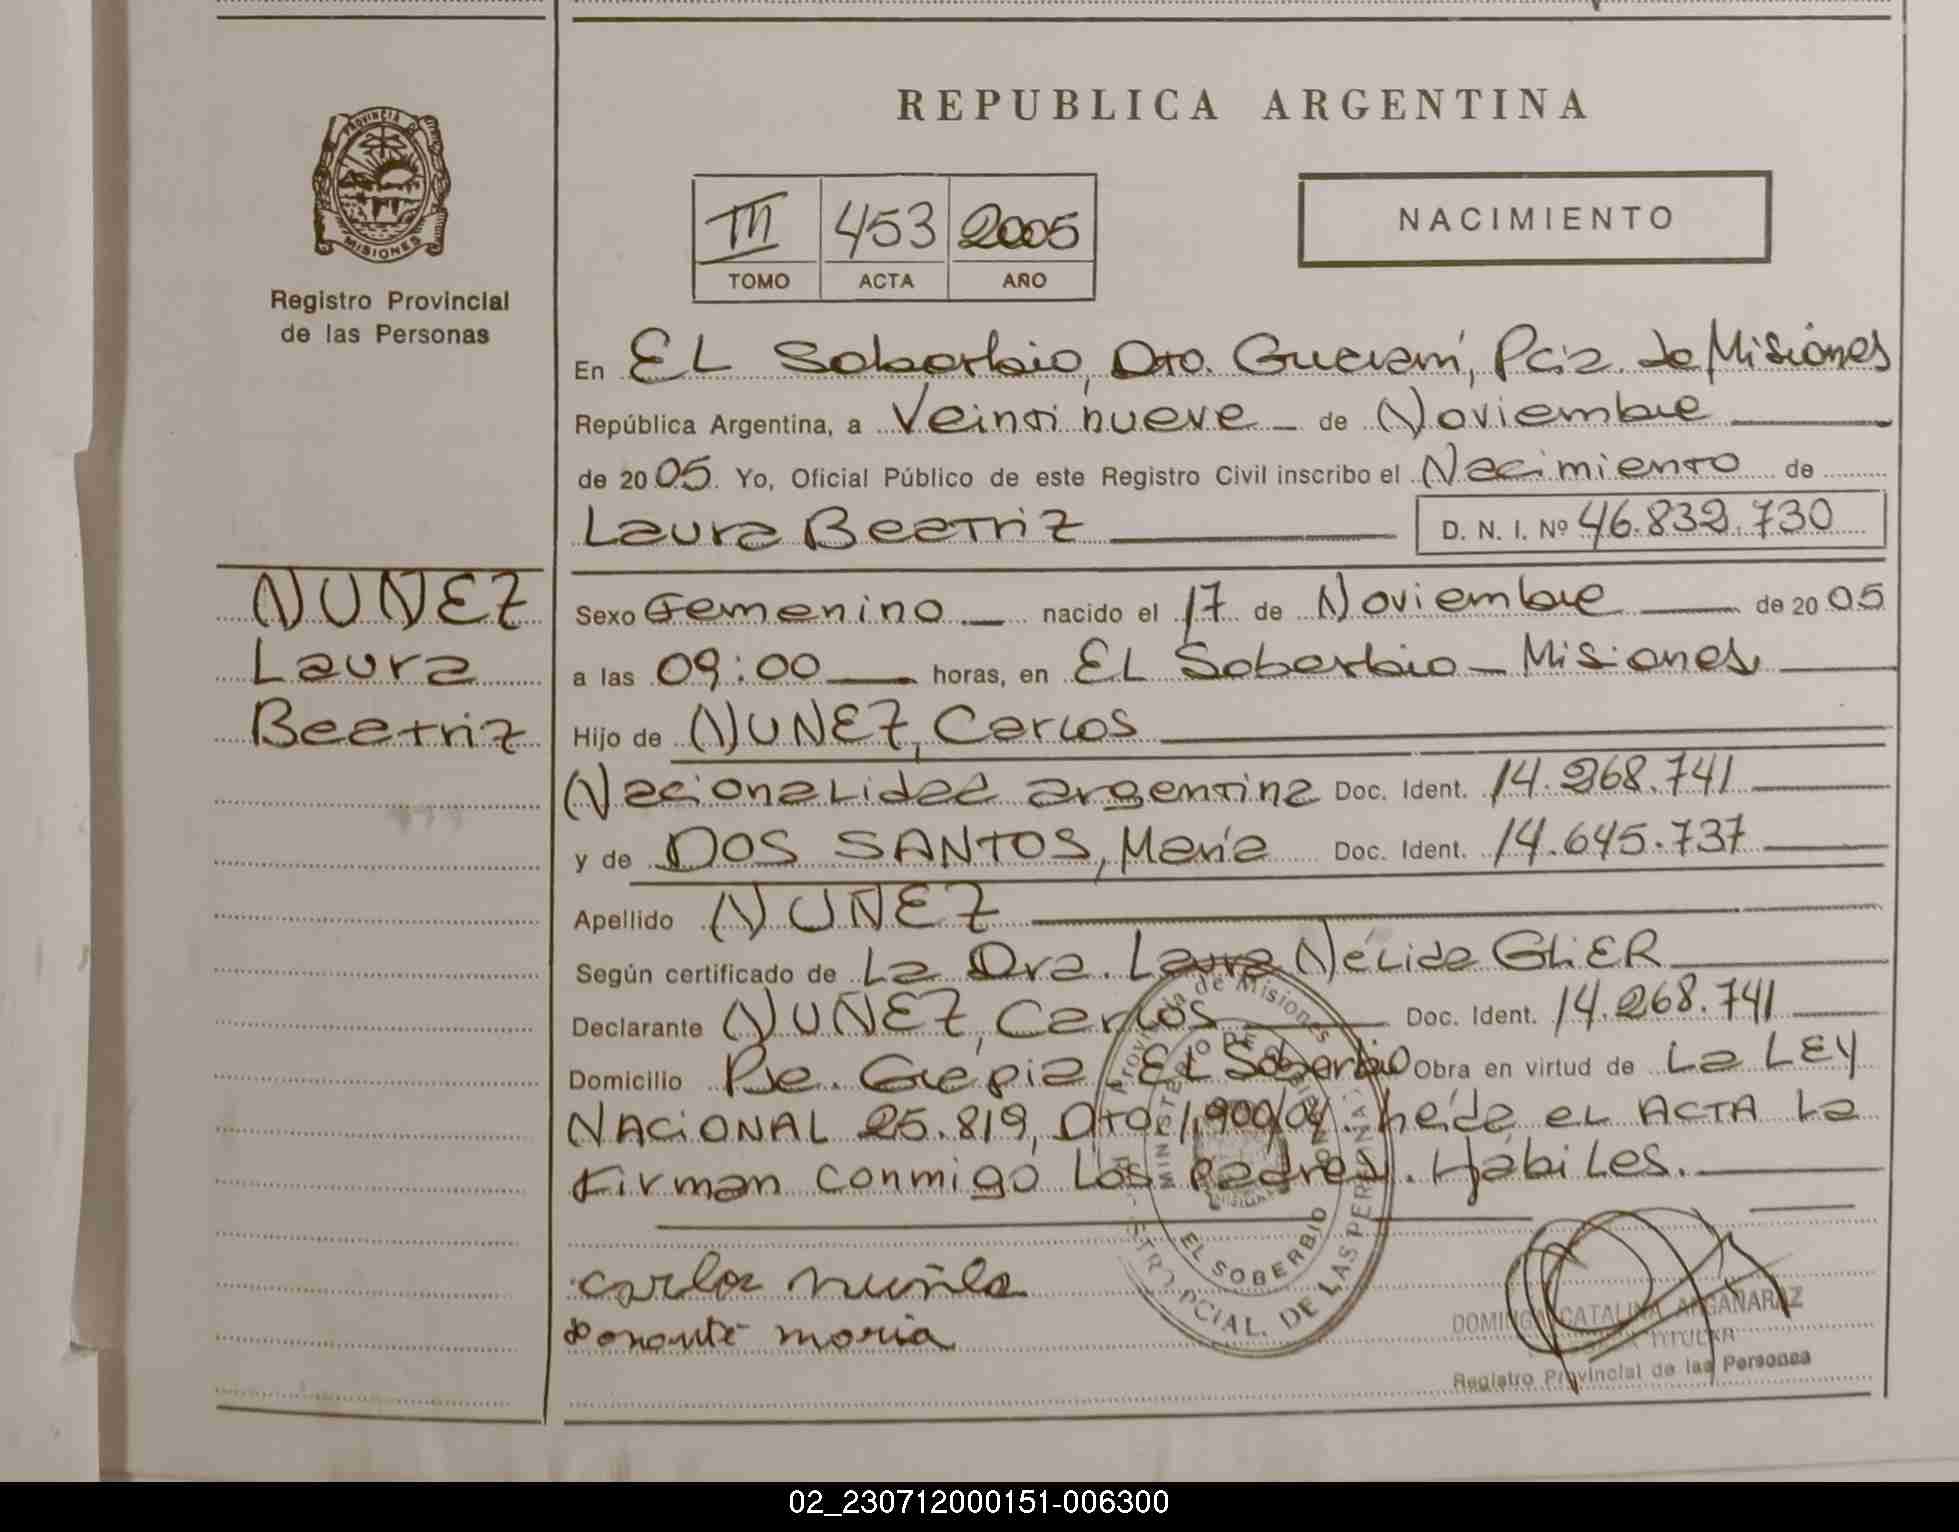 REPUBLICA ARGENTINA
PROVINCIA D
MISIONES
Registro Provincial
de las Personas
III 453 2005
TOMO ACTA AÑO
NACIMIENTO
En EL Soberbio, Dto. Guaraní, Pcia. de Misiones
República Argentina, a Veinti nueve de Noviembre
de 2005. Yo, Oficial Público de este Registro Civil inscribo el Nacimiento de
Laura Beatriz D. N. I. Nº 46.832.730
NUÑEZ
Laura
Beatriz
Sexo Femenino nacido el 17 de Noviembre de 2005
a las 09:00 horas, en EL Soberbio - Misiones
Hijo de NUÑEZ, Carlos
Nacionalidad argentina Doc. Ident. 14.268.741
y de DOS SANTOS, María Doc. Ident. 14.645.737
Apellido NUÑEZ
Según certificado de La Dra. Laura Nélida GLIER
Declarante NUÑEZ, Carlos Doc. Ident. 14.268.741
Domicilio Pje. EL Soberbio Obra en virtud de La LEY
NACIONAL 25.819, Dto. 1.900/04. Leída EL ACTA La
Firman conmigo Los padres. Hábiles.
Provincia de Misiones
MINISTERIO DE GOBIERNO
EL SOBERBIO
PCIAL. DE LAS PERSONAS
carlos nuñes
maria
DOMINGA CATALINA ARGAÑARAZ
TITULAR
Registro Provincial de las Personas
02_230712000151-006300